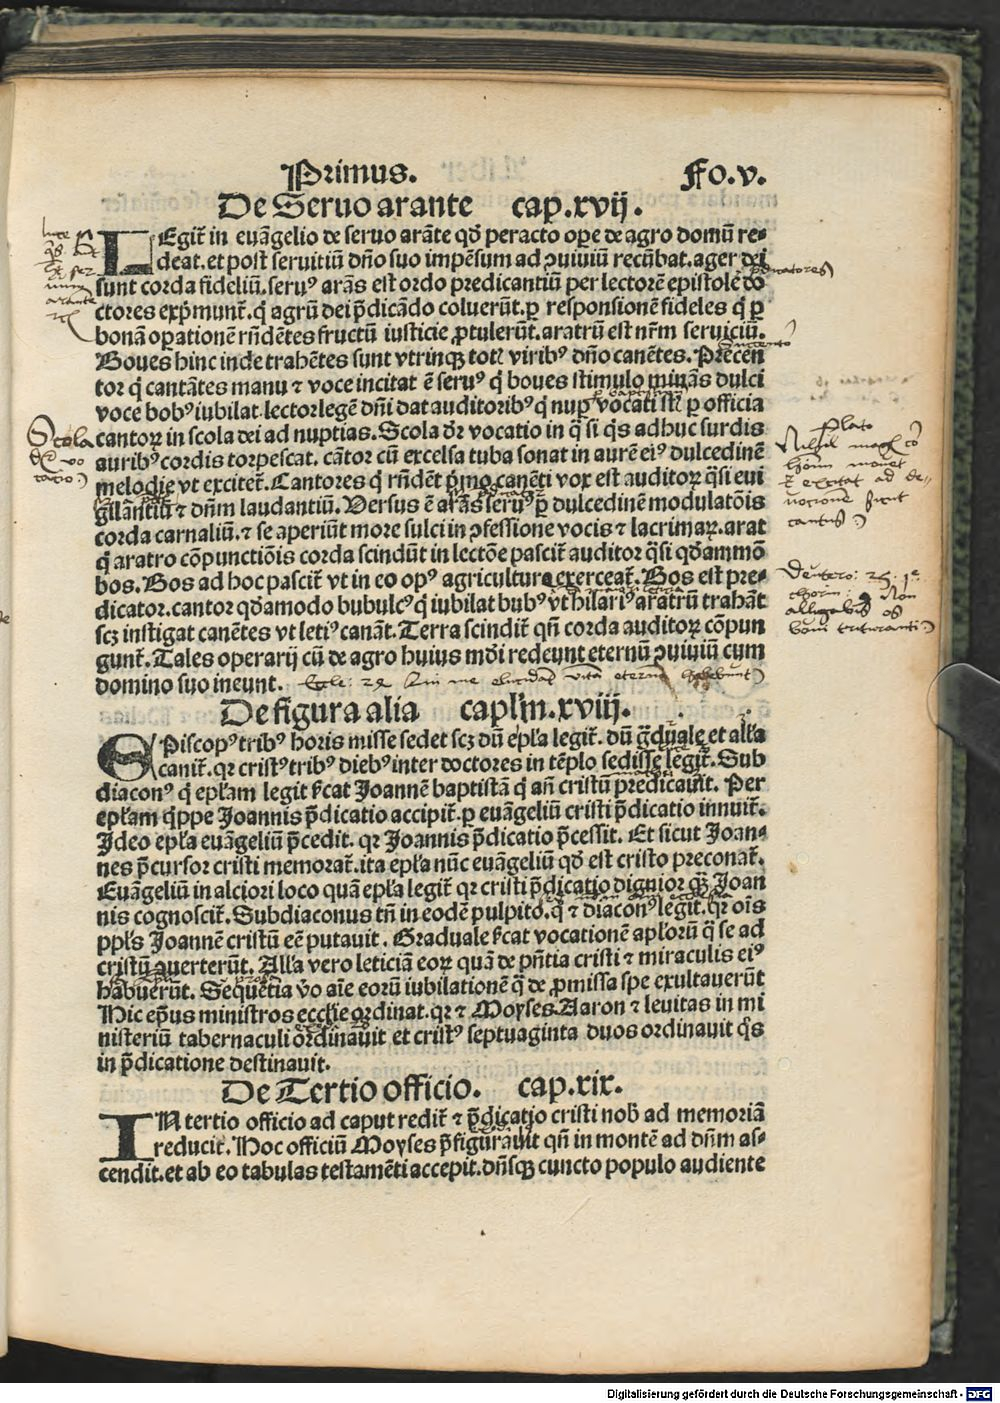 Primus. Fo.v.
De Seruo arante cap.xvij.
LEgit̃ in euãgelio de seruo arãte qď peracto oꝑe de agro domũ re-
deat.et post seruitiũ dño suo impẽsum ad ꝯuiuiũ recũbat.ager dei
sunt corda fideliũ.seruꝰ arãs est ordo predicantiũ per lectorẽ epistole do
ctores exp̃munt̃.q̃ agrũ dei p̃dicãdo coluerũt.ꝑ responsionẽ fideles q̃ ꝑ
bonã oꝑationẽ rñdẽtes fructũ iusticie ꝓtulerũt.aratrũ est nr̃m seruiciũ.
Boues hinc inde trahẽtes sunt vtrinqꝫ totꝭ viribꝰ dño canẽtes.Precen
tor q̃ cantãtes manu ⁊ voce incitat ẽ seruꝰ q̃ boues stimulo minãs dulci
voce bobꝰ iubilat.lector legẽ dñi dat auditoribꝰ q̃ nuꝑ vocati st̃ ꝑ officia
cantoꝝ in scola dei ad nuptias.Scola dr̃ vocatio in q̃ si q̃s adhuc surdis
auribꝰ cordis torpescat.cãtor cũ excelsa tuba sonat in aurẽ eiꝰ dulcedinẽ
melodie vt excitet̃.Cantores q̃ rñdẽt p̃mo canẽti vox est auditoꝝ q̃si eui
gilantiũ ⁊ dñm laudantiũ.Versus ẽ arãs seruꝰ ꝑ dulcedinẽ modulatõis
corda carnaliũ.⁊ se aperiũt more sulci in ꝯfessione vocis ⁊ lacrimaꝝ.arat
q̃ aratro cõpunctiõis corda scindũt in lectõe pascit̃ auditor q̃si qďammõ
bos.Bos ad hoc pascit̃ vt in eo opꝰ agriculture exerceat̃.Bos est pre-
dicator.cantor qďamodo bubulcꝰ q̃ iubilat bubꝰ vt hilariꝰ aratrũ trahãt
scꝫ instigat canẽtes vt letiꝰ canãt.Terra scindit̃ qñ corda auditoꝝ cõpun
gunt̃.Tales operarij cũ de agro huius mũdi redeunt eternũ ꝯuiuiũ cum
domino suo ineunt.
De figura alia caplm̃.xviij.
EPiscopꝰ tribꝰ horis misse sedet scꝫ dũ epl̃a legit̃. dũ g̃duale et all̃a
canit̃. qr cristꝰ tribꝰ diebꝰ inter doctores in tẽplo sedisse legit̃. Sub
diaconꝰ q̃ epl̃am legit s̃cat Joannẽ baptistã q̃ añ cristũ predicauit. Per
epl̃am q̃ppe Joannis p̃dicatio accipit̃.ꝑ euãgeliũ cristi p̃dicatio innuit̃.
Jdeo epl̃a euãgeliũ p̃cedit. qr Joannis p̃dicatio p̃cessit. Et sicut Joan-
nes p̃cursor cristi memorat̃.ita epl̃a nũc euãgeliũ qď est cristo preconat̃.
Euãgeliũ in alciori loco quã epl̃a legit̃ qr cristi p̃dicatio dignior qꝫ̃ Joan
nis cognoscit̃.Subdiaconus tñ in eodẽ pulpito.q̃ ⁊ diaconꝰ legit̃.qr oĩs
ppl̃s Joannẽ cristũ eẽ putauit. Graduale s̃cat vocationẽ apl̃orũ q̃ se ad
cristũ auerterũt. All̃a vero leticiã eoꝝ quã de p̃ñtia cristi ⁊ miraculis eiꝰ
habuerũt. Sequẽtia v̊o aĩe eorũ iubilationẽ q̃ de ꝓmissa spe exultauerũt
Hic ep̃us ministros ecc̃lie ordinat.qr ⁊ Moyses.Aaron ⁊ leuitas in mi
nisteriũ tabernaculi ordinauit et cristꝰ septuaginta duos ordinauit q̃s
in p̃dicatione destinauit.
De Tertio officio. cap.xix.
IN tertio officio ad caput redit̃ ⁊ p̃dicatio cristi nob̃ ad memoriã
reducit̃.Hoc officiũ Moyses p̃figurauit qñ in montẽ ad dñm as-
cendit.et ab eo tabulas testamẽti accepit.dñsqꝫ cuncto populo audiente
Scola
Plato
Digitalisierung gefördert durch die Deutsche Forschungsgemeinschaft - DFG